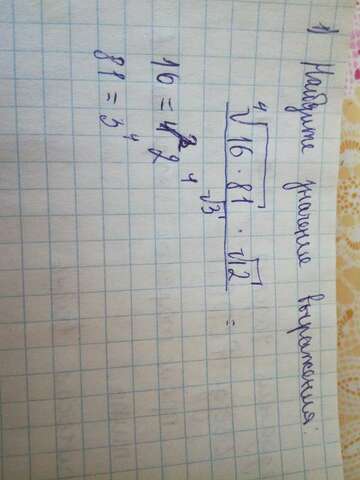 1) Найдите значение выражения:
⁴√16·81 · √12 =
√3
16 = 2⁴
81 = 3⁴